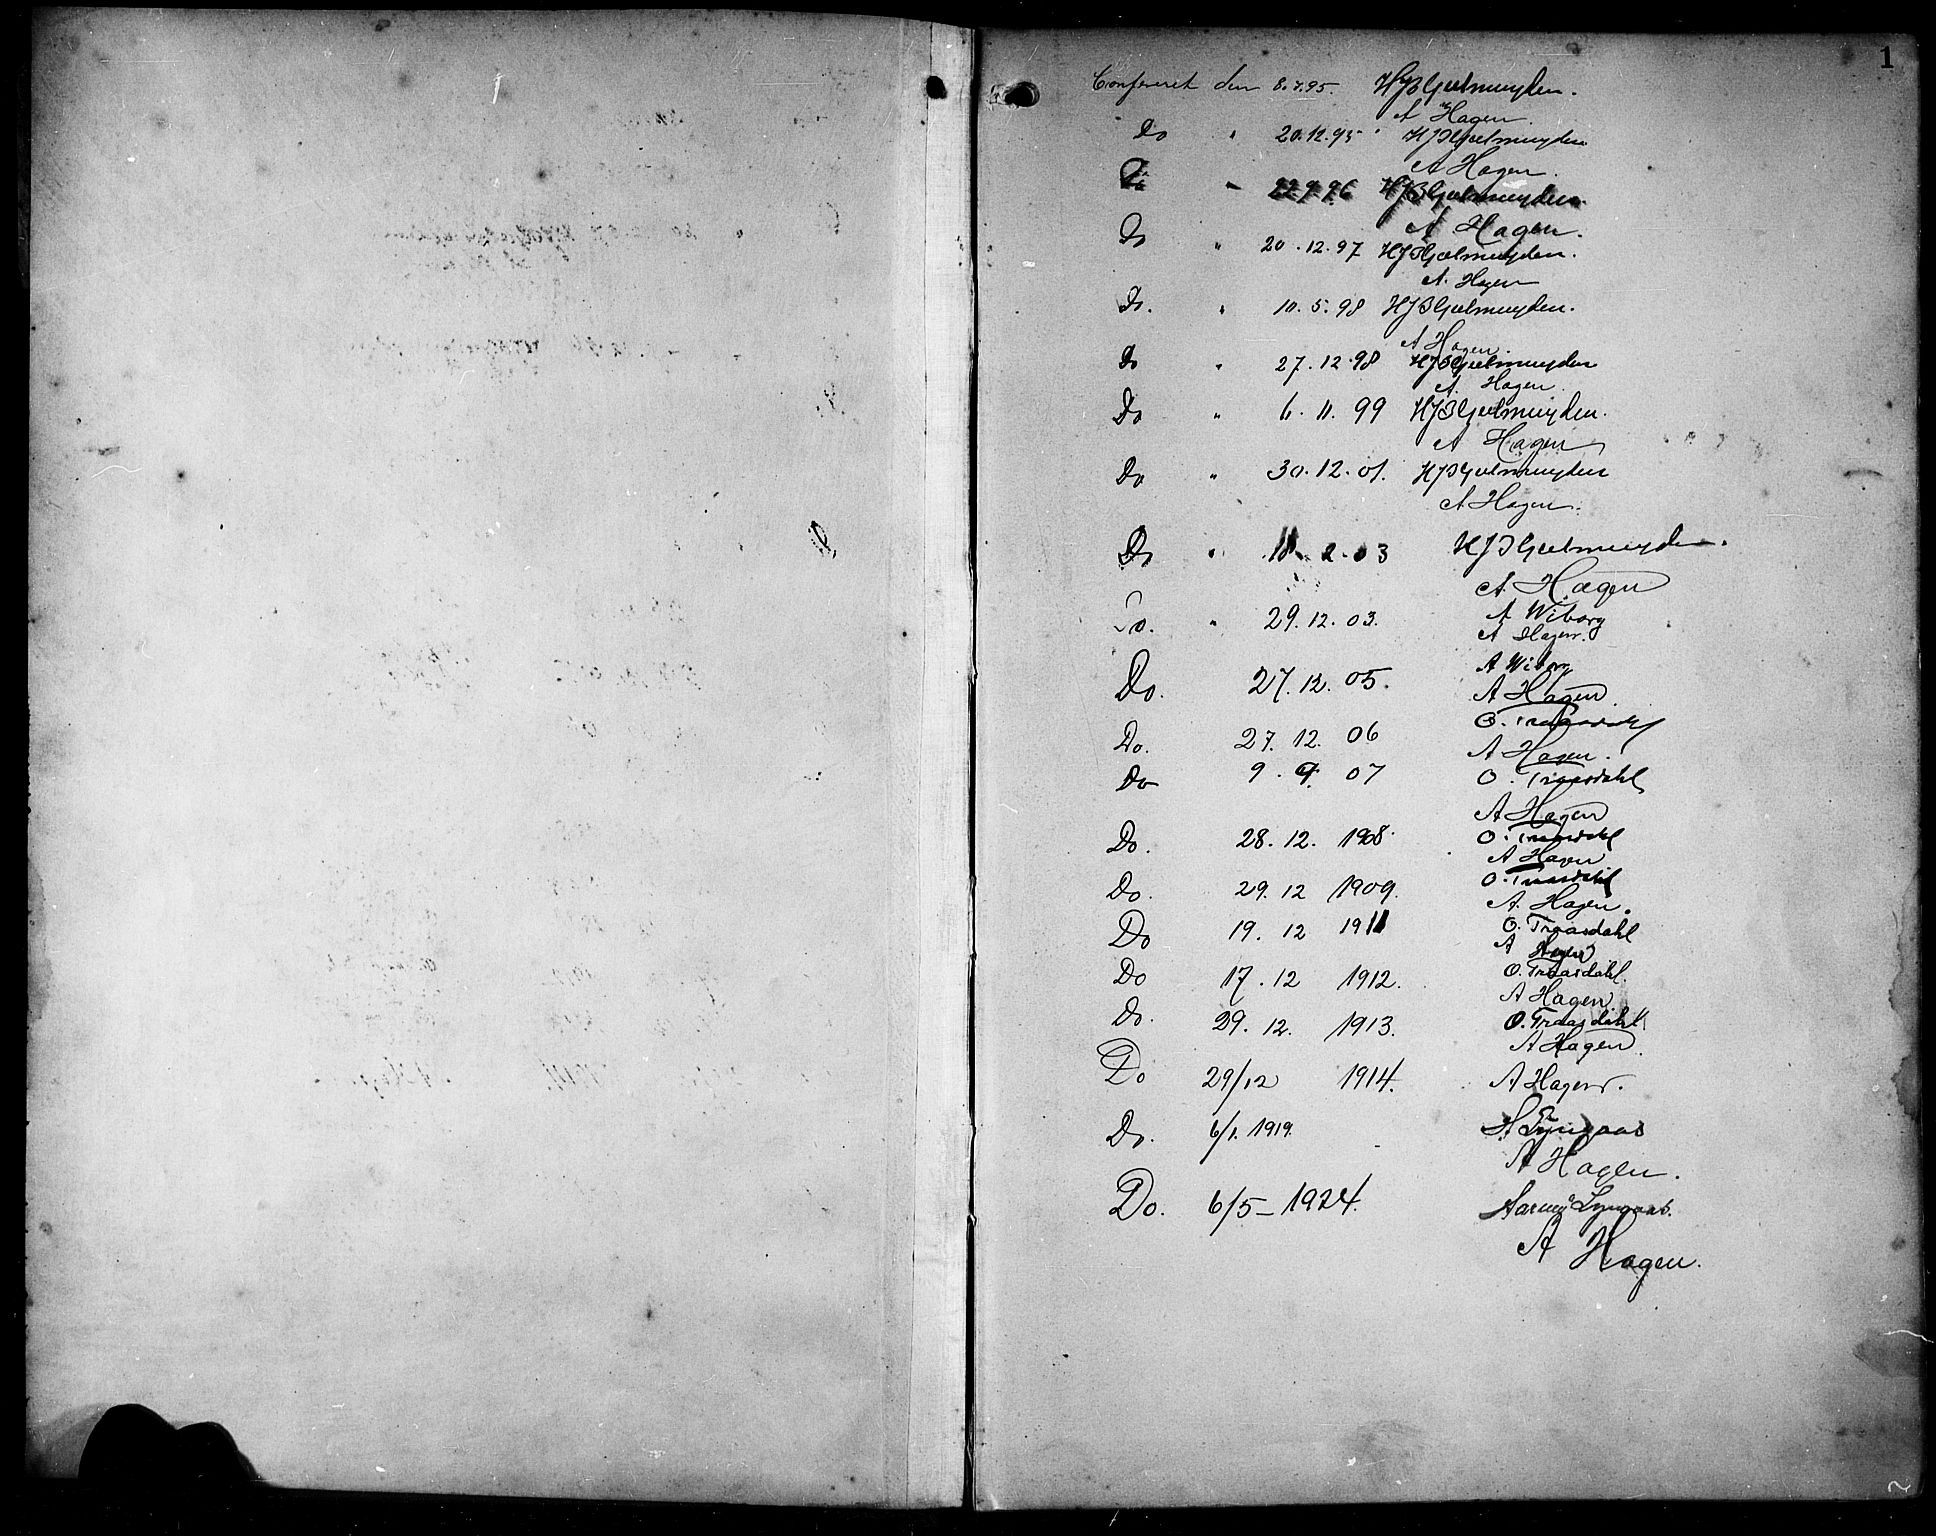 1
Confereret den 8.7.95. HJBGjelmuyden.
A Hagen.
Do " 20.12.95 HJBGjelmuyden
A Hagen.
Do " 22.9.96 HJBGjelmuyden.
A Hagen.
Do " 20.12.97 HJBGjelmuyden.
A. Hagen
Do. " 10.5.98 HJBGjelmuyden.
A Hagen.
Do " 27.12.98 HJBGjelmuyden
A. Hagen.
Do " 6.11.99 HJBGjelmuyden.
A Hagen
Do " 30.12.01. HJBGjelmuyden
A Hagen.
Do " 18.2.03 HJBGjelmuyden.
A. Hagen
Do. " 29.12.03. A Wiborg
A Hagen.
Do. 27.12.05. A Wiborg
A Hagen.
Do. 27.12.06 O. Traasdahl
A Hagen.
Do 9.9.07 O. Traasdahl
A Hagen
Do. 28.12.1908. O. Traasdahl
A Hagen
Do. 29.12 1909. O. Traasdahl
A. Hagen.
Do 19.12 1911 O. Traasdahl
A Hagen
Do 17.12 1912. O. Traasdahl.
A Hagen.
Do. 29.12. 1913. O. Traasdahl
A Hagen.
Do 29/12 1914. A Hagen.
Do. 6/1. 1919. A Lyngaas
A Hagen.
Do. 6/5-1924. Lyngaas.
A Hagen.
2